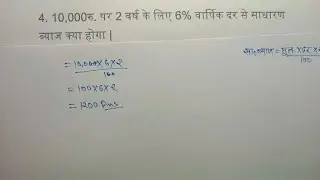 4. 10,000रु. पर 2 वर्ष के लिए 6% वार्षिक दर से साधारण
ब्याज क्या होगा |
ब्याज = मूल × दर ×
100
= 10,000 × 6 × 2
100
= 100 × 6 × 2
= 1200 Ans